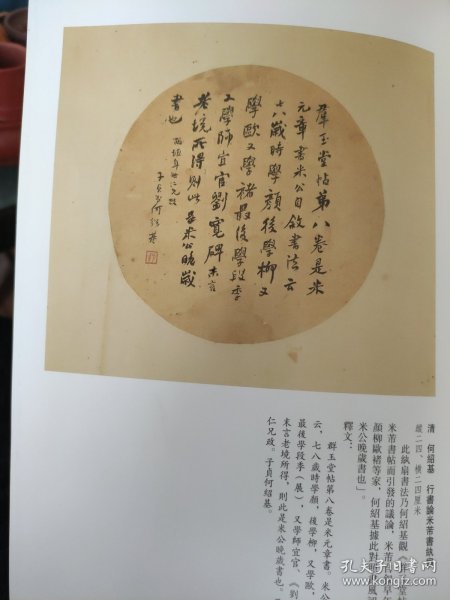 羣玉堂帖第八卷是米
元章書米公自敘書法云
七八歲時學顏後學柳又
學歐又學褚最後學段季
又學師宜官劉寬碑末言
老境所得則此是米公晚歲
書也
仁兄政
子貞何紹基
清 何紹基 行書論米芾書紈扇
縱二四、橫二四厘米
此紈扇書法乃何紹基觀《
米芾書帖而引發的議論，米芾
顏柳歐褚等家，何紹基據此對
米公晚歲書也」。
釋文：
群玉堂帖第八卷是米元章書。米公
云，七八歲時學顏，後學柳，又學歐，
最後學段季（展），又學師宜官、《劉
末言老境所得，則此是米公晚歲書也。
仁兄政。子貞何紹基。
孔夫子旧书网